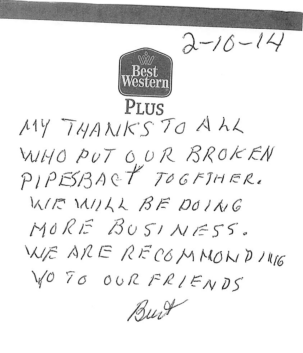 2-10-14
Best
Western
PLUS
MY THANKS TO ALL
WHO PUT OUR BROKEN
PIPESBACK TOGETHER.
WE WILL BE DOING
MORE BUSINESS.
WE ARE RECOMMONDING
YO TO OUR FRIENDS
Burt